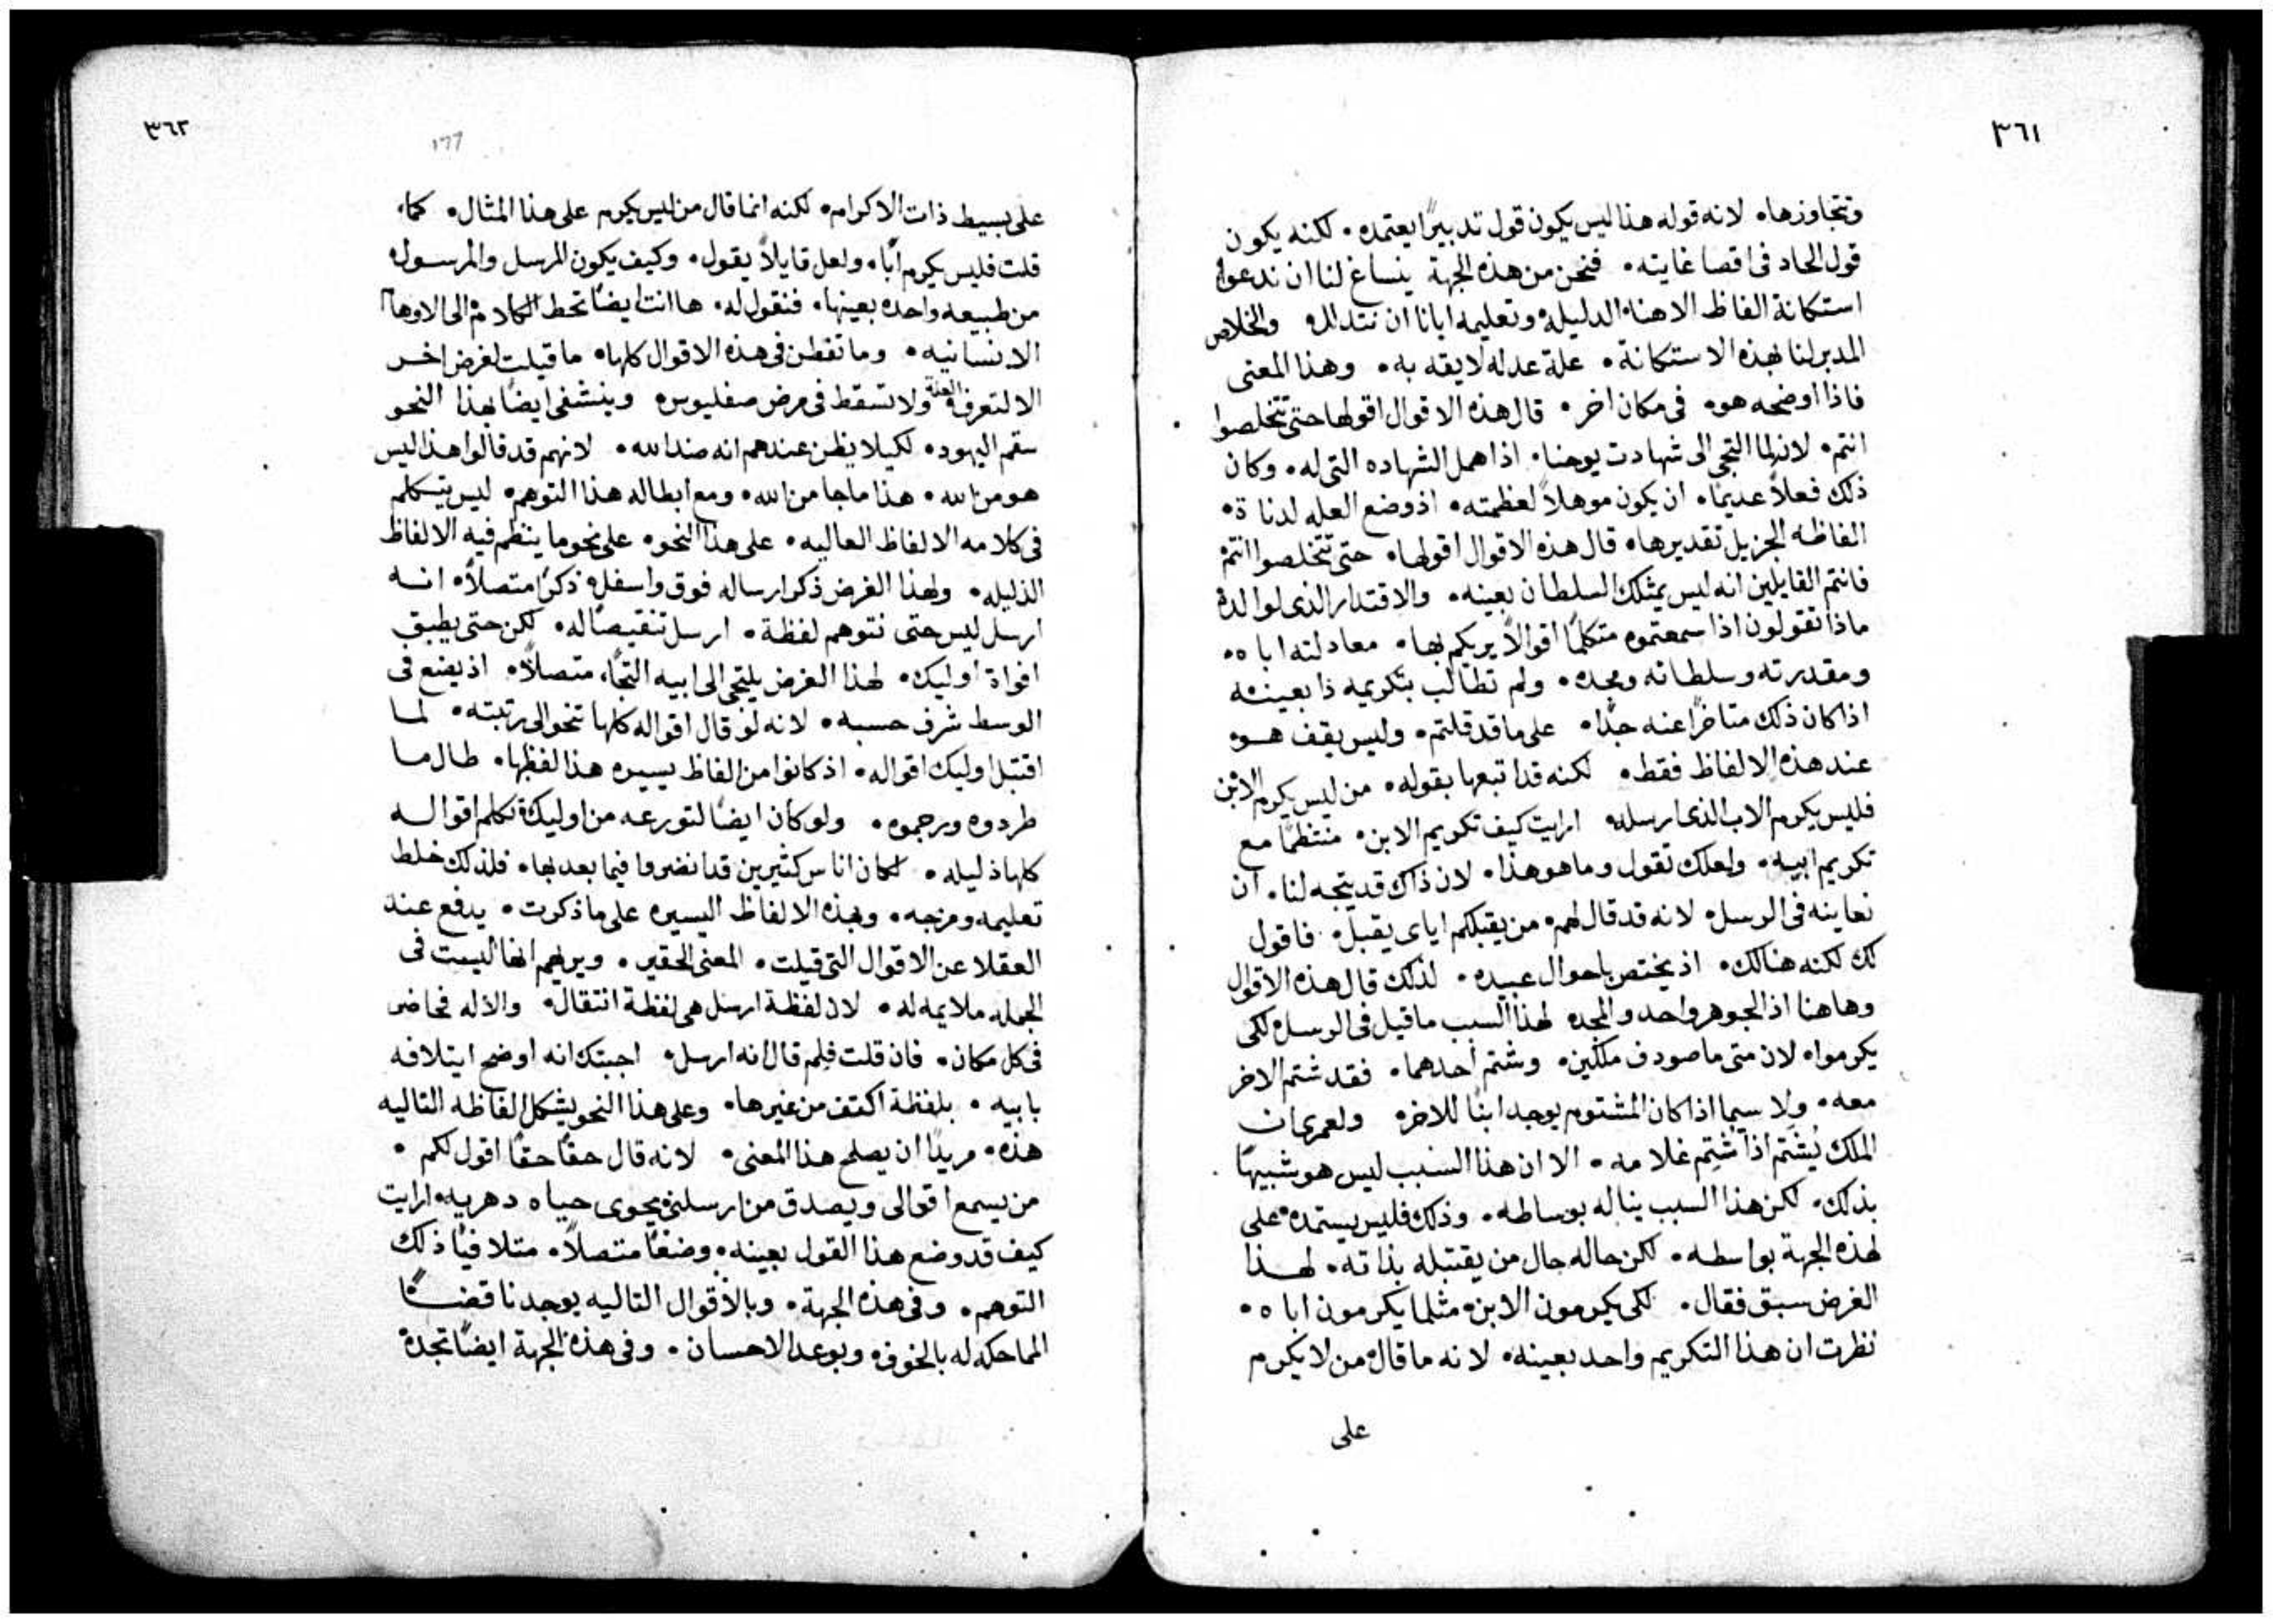 ٣٦١
وتتجاوزها. لانه قوله هذا ليس يكون قول تدبيرًا يعتمده. لكنه يكون
قول الحاد فى اقصا غايته. فنحن من هذه الجهة ينساغ لنا ان ندعوا
استكانة الفاظ الاهنا الدليله وتعليمه ايانا ان نتدلل والخلاص
المدبر لنا بهذه الاستكانة. علة عدله لايقه به. وهذا المعنى
فاذا اوضحه هو. فى مكان اخر. قال هذه الاقوال اقولها حتى تتخلصوا
انتم. لانه لما التجى الى شهادت يوحنا. اذا همل الشهاده التى له. وكان
ذلك فعلاً عديمًا. ان يكون موهلاً لعظمته. اذ وضع العله لدناة.
الفاظه الجزيل تقديرها. قال هذه الاقوال اقولها. حتى تتخلصوا انتم
فانتم القايلين انه ليس يمتلك السلطان بعينه. والاقتدار الذى لوالده
ماذا تقولون اذا سمعتموه متكلمًا اقوالاً يريكم بها. معادلته اباه.
ومقدرته وسلطانه ومجده. ولم تطالب بتكريمه ذا بعينه
اذا كان ذلك متاخرًا عنه جدًا. على ما قد قلتم. وليس يقف هو
عند هذه الالفاظ فقط. لكنه قد اتبعها بقوله. من ليس يكرم الابن
فليس يكرم الاب الذى ارسله. ارايت كيف تكريم الابن. منتظمًا مع
تكريم ابيه. ولعلك تقول وما هو هذا. لان ذاك قد يتجه لنا. ان
نعاينه فى الرسل. لانه قد قال لهم. من يقبلكم اياى يقبل. فاقول
لك لكنه هنالك. اذ يختص باحوال عبيده. لذلك قال هذه الاقوال
وهاهنا اذ الجوهر واحد والمجد. لهذا السبب ما قيل فى الرسل لكى
يكرموا. لان متى ما صودف ملكين. وشتم احدهما. فقد شتم الاخر
معه. ولا سيما اذا كان المشتوم يوجد ابنًا للاخر. ولعمرى ان
الملك يُشتم اذا شُتم غلامه. الا ان هذا السبب ليس هو شبيهًا
بذلك. لكن هذا السبب يناله بوساطه. وذلك فليس يستمده على
هذه الجهة بواسطه. لكن حاله حال من يقتبله بذاته. لهذا
الغرض سبق فقال. لكى يكرمون الابن. مثلما يكرمون اباه.
نظرت ان هذا التكريم واحد بعينه. لانه ما قال من لا يكرم
على
٣٦٢
١٦٦
على بسيط ذات الاكرام. لكنه انما قال من ليس يكرم على هذا المثال. كما
قلت فليس يكرم ابًا. ولعل قايلاً يقول. وكيف يكون المرسل والمرسول
من طبيعه واحده بعينها. فنقول له. ها انت ايضًا تحط الكلام الى الاوهام
الانسانيه. وما تفطن فى هذه الاقوال كلها. ما قيلت لغرض اخر
الا لتعرف العلة ولا تسقط فى مرض صفليوس. وينشفى ايضًا بهذا النحو
سقم اليهود. لكيلا يظن عندهم انه ضد الله. لانهم قد قالوا هذا ليس
هو من الله. هذا ما جا من الله. ومع ابطاله هذا التوهم. ليس يتكلم
فى كلامه الالفاظ العاليه. على هذا النحو. على نحو ما ينتظم فيه الالفاظ
الذليله. ولهذا الغرض ذكر ارساله فوق واسفل. ذكرًا متصلاً. انه
ارسل ليس حتى نتوهم لفظة. ارسل تنقيصًا له. لكن حتى يطبق
افواة اوليك. لهذا الغرض يلتجى الى ابيه التجًا متصلاً. اذ يضع فى
الوسط شرف حسبه. لانه لو قال اقواله كلها تنحو الى رتبته. لما
اقتبل اوليك اقواله. اذ كانوا من الفاظ يسيره هذا لفظها. طال ما
طردوه ورجموه. ولو كان ايضًا لتورعه من اوليك تكلم اقواله
كلها ذليله. لكان اناس كثيرين قد انضروا فيما بعد بها. فلذلك خلط
تعليمه ومزجه. وبهذه الالفاظ اليسيره على ما ذكرت. يدفع عند
العقلا عن الاقوال التى قيلت. المعنى الحقير. ويريهم انها ليست فى
الجمله ملايمه له. لان لفظة ارسل هى لفظة انتقال. والاله فحاضر
فى كل مكان. فان قلت فلم قال انه ارسل. اجبتك انه اوضح ايتلافه
بابيه. بلفظة اكتف من غيرها. وعلى هذا النحو يشكل الفاظه التاليه
هذه. مريدًا ان يصلح هذا المعنى. لانه قال حقًا حقًا اقول لكم.
من يسمع اقوالى ويصدق من ارسلنى يحوى حياه دهريه. ارايت
كيف قد وضع هذا القول بعينه. وضعًا متصلاً. متلافيًا ذلك
التوهم. وفى هذه الجهة. وبالاقوال التاليه يوجد ناقضًا
المماحكه له بالخوف. وبوعد الاحسان. وفى هذه الجهة ايضًا تجدة